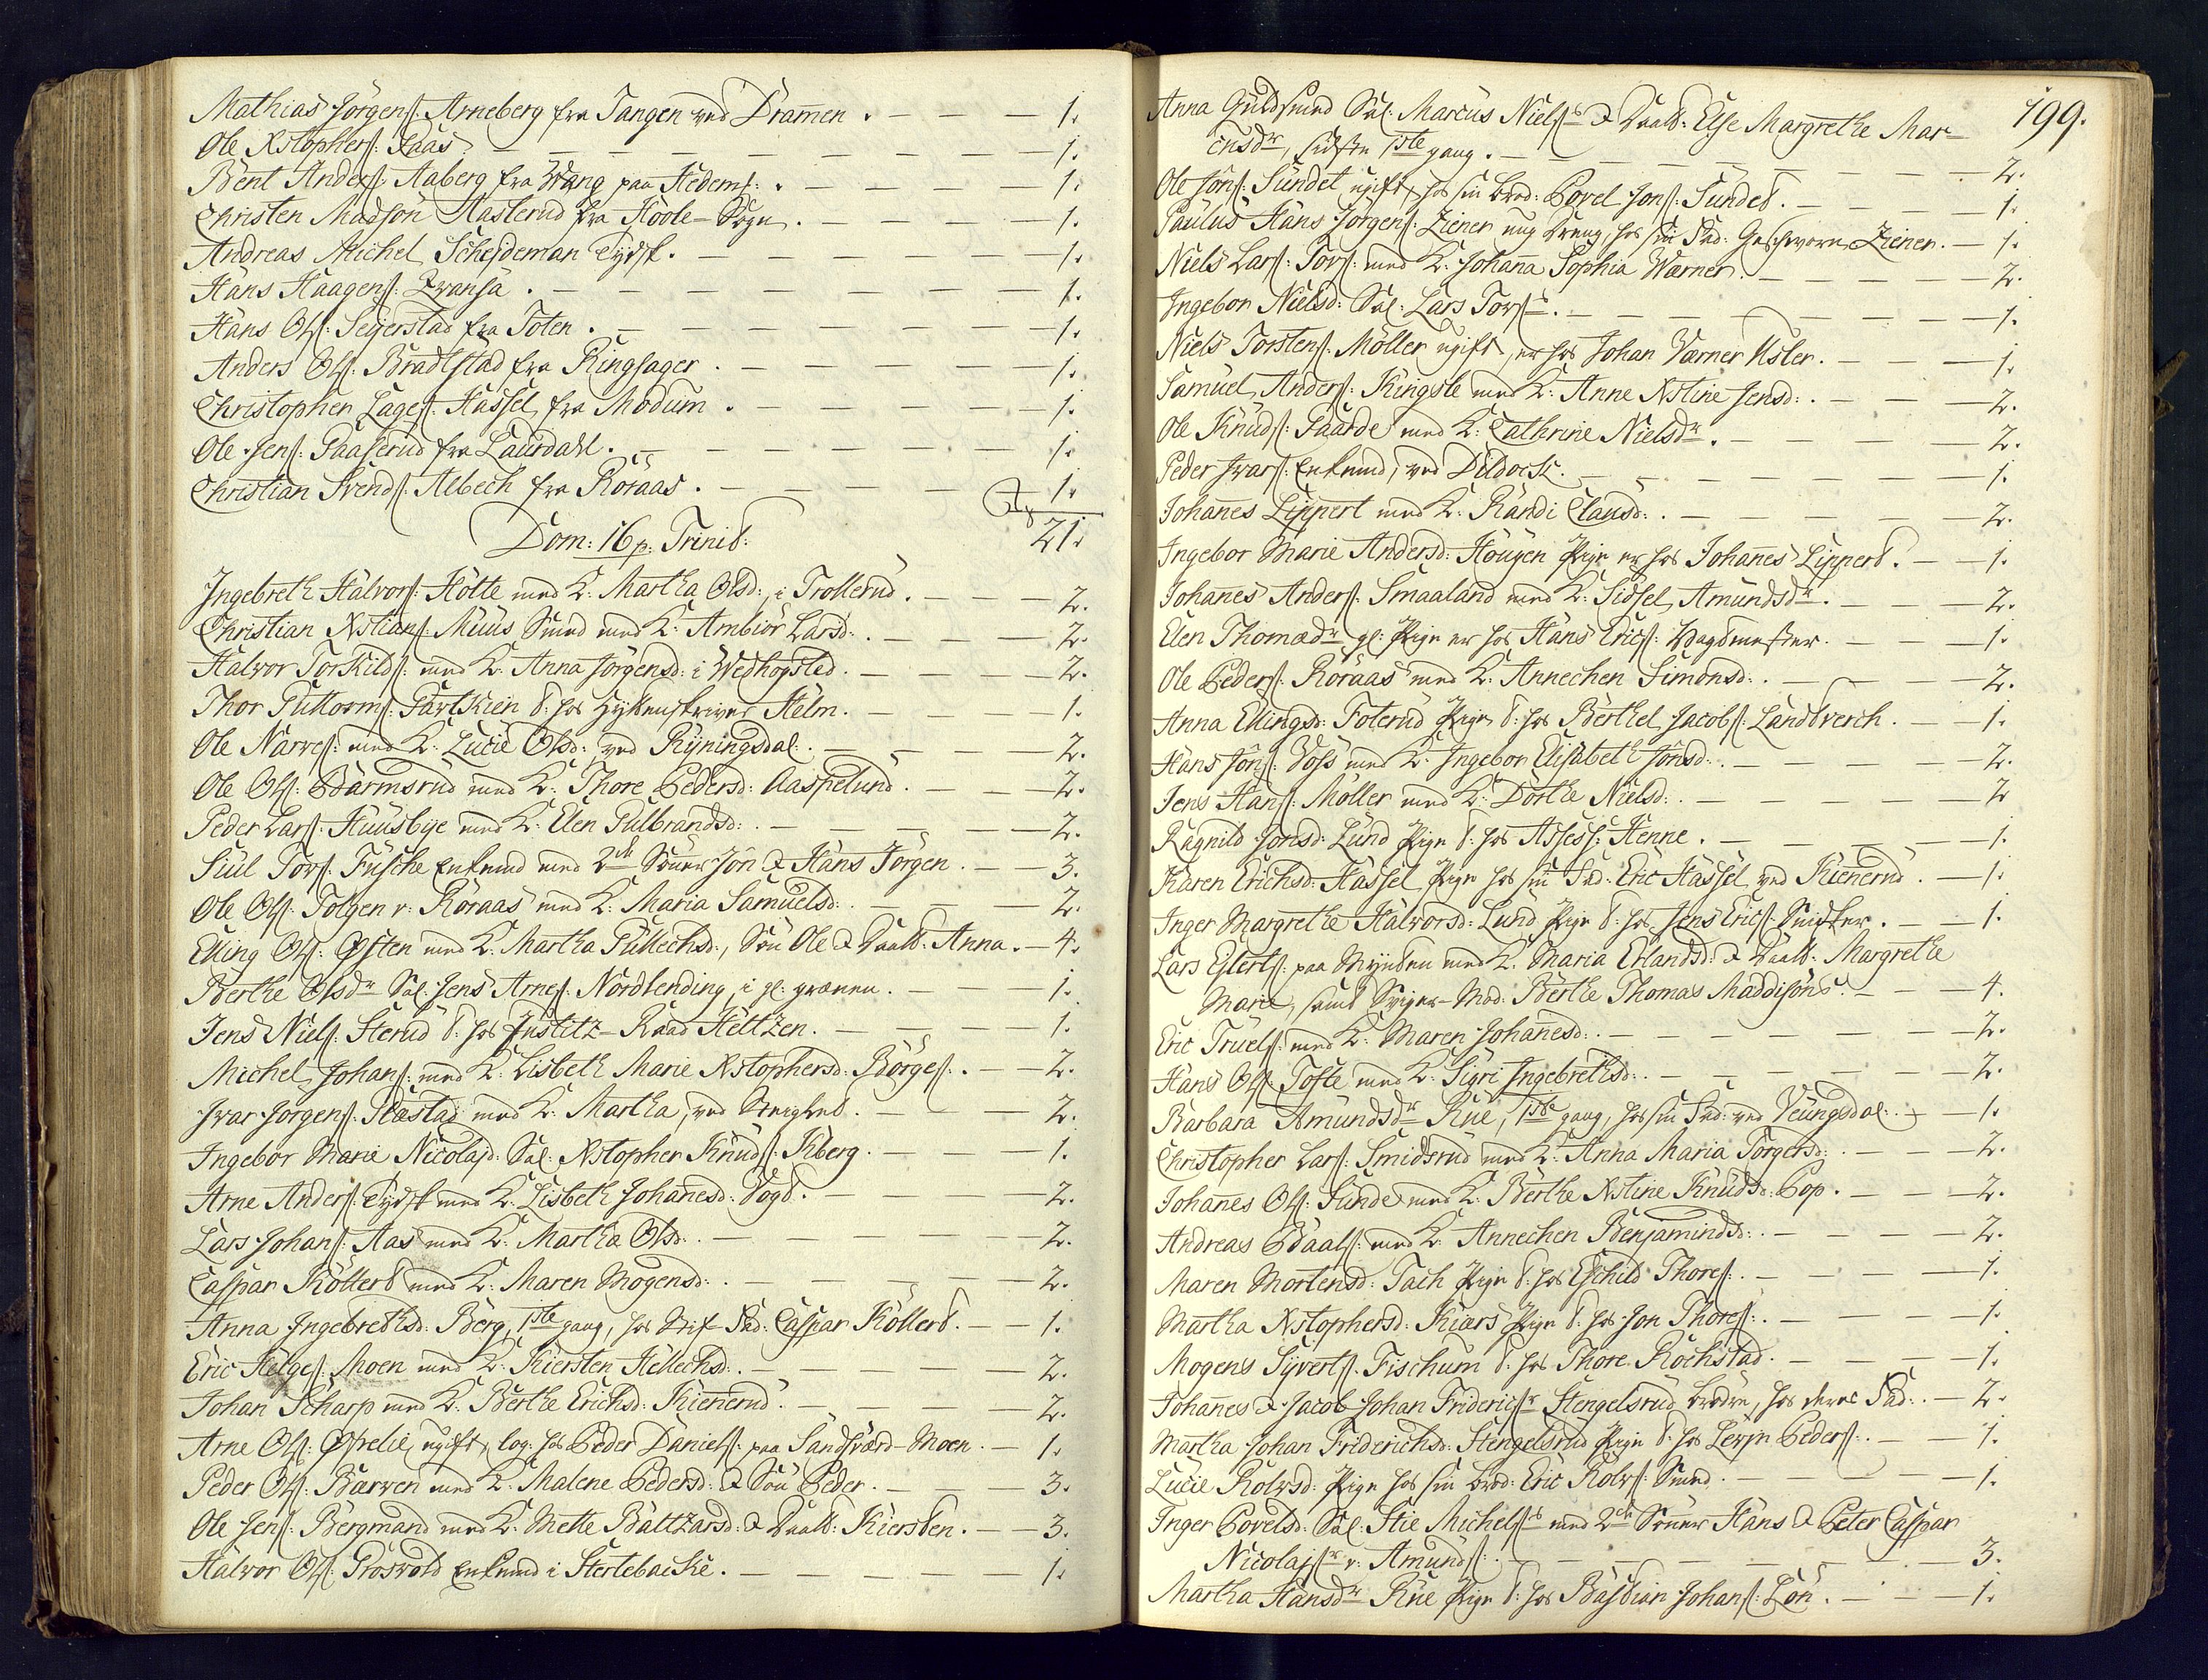 Mathias Jörgenß: Arneberg fra Tangen ved Dramen. — — — 1.
Ole Xstopherß: Raas. — — — 1.
Bent Anderß: Aaberg fra Wang paa Hedem: — — — 1.
Christen Madsön Haslerud fra Hoole-Sogn. — — — 1.
Andreas Michel Schejdeman Tydsk. — — — 1.
Hans Haagenß: — — — 1.
Hans Olß: Sejerstad fra Toten. — — — 1.
Anders Olß: Bradtstad fra Ringsager. — — — 1.
Christopher Lageß: Hassel fra Modum. — — — 1.
Ole Jenß: Paaserud fra Laurdahl. — — — 1.
Christian Svendß: Albech fra Röraas. — — — 1.
21.
Dom: 16 p: Trinit:
Ingebreth Halvorß: Hotte med K: Martha Olsd: i Trollerud. — — — 2.
Christian Xstianß: Muus Smed med K: Ambiör Larsd: — — — 2.
Halvor Torkildß: med K: Anna Jörgensd: i Wedhogsted. — — — 2.
Thor Guttormß: t: hos Hyttenskriver Helm. — — — 1.
Ole Narveß: med K: Lucie Olsd: ved Ryningsdal. — — — 2.
Ole Olß: Bärmsrud med K: Thore Pedersd: Aaspelund. — — — 2.
Peder Larß: Huusbye med K: Elen Gulbrandsd: — — — 2.
Siul Torß: Fusche Enkemd med 2de Sönner Jon & Hans Jörgen. — — 3.
Ole Olß: Tolgen v: Röraas med K: Maria Samuelsd: — — — 2.
Elling Olß: Østen med K: Martha Gullechsd:, Sön Ole & Daatt: Anna. — 4.
Berthe Olsdr Sal: Jens Arneß: Nordlending, i gl: — — — 1.
Jens Nielß: Sterud t: hos Justitz-Raad Heltzen. — — — 1.
Michel Johanß: med K: Lisbeth Marie Xstophersd: Börgeß: — — 2.
Ivar Jorgenß: med K: Martha, ved — — — 2.
Ingebor Marie Nicolajd: Sal: Xstopher Knudß: Kiberg. — — — 1.
Arne Anderß: Tydsk med K: Lisbeth Johanesd: Vogt. — — — 2.
Lars Johanß: Aas med K: Martha Olsd: — — — 2.
Caspar Köllert med K: Maren Mogensd: — — — 2.
Anna Ingebrethsd: Berg, 1ste gang, hos Stif-Fad: Caspar Köllert. — — 1.
Eric Helgeß: Moen med K: Kiersten Hellechsd: — — — 2.
Johan Scharp med K: Berthe Erichsd: Kiennerud. — — — 2.
Arne Olß: ugift, log: hos Peder Danielß: paa Sandsværd-Moen. — 1.
Peder Olß: Barwen med K: Malene Pedersd: & Sön Peder. — — — 3.
Ole Jenß: Bergmand med K: Mette Baltzarsd: & Daatt: Kiersten. — — 3.
Halvor Olß: Grosvold Enkemd i Stertebacke. — — — 1.
199.
Anna Guldsmed Sal: Marcus Nielßs & Daatt: Else Margrethe Mar-
cusdr, sidste 1ste gang. — — — 2.
Ole Jonß: Sundet ugift, hos sin Brod: Povel Jonß: Sundet. — — — 1.
Paulus Hans Jörgenß: Ziener ung Dreng, hos sin Fad: Geschworn Ziener. — 1.
Niels Larß: Torß: med K: Johanna Sophia Warner. — — — 2.
Ingebor Nielsd: Sal: Lars Torßs. — — — 1.
Niels Torstenß: Möller ugift, er hos Johan Varner Usler. — — — 1.
Samuel Anderß: Kingsle med K: Anne Xstine Jensd: — — — 2.
Ole Knudß: Gaarde med K: Cathrine Nielsdr. — — — 2.
Peder Ivarß: Enkemd, ved Dildock. — — — 1.
Johannes Lippert med K: Randi Clausd: — — — 2.
Ingebor Marie Andersd: Hougen Pige er hos Johannes Lippert. — — 1.
Johannes Anderß: Smaaland med K: Sidsel Amundsdr. — — — 2.
Elen Thomædr gl: Pige er hos Hans Ericß: Wagtmester. — — — 1.
Ole Pederß: Röraas med K: Annechen Simonsd: — — — 2.
Anna Ellingsd: Foterud Pige t: hos Berthel Jacobß: Landverch. — — 1.
Hans Jonß: Voss med K: Ingebor Elisabeth Jonsd: — — — 2.
Jens Hanß: Möller med K: Dorthe Nielsd: — — — 2
Ragnild Jonsd: Lund Pige t: hos Assess: Henne. — — — 1.
Karen Erichsd: Hassel, Pige hos sin Fad: Eric Hassel, ved Kienerud. — 1.
Inger Margrethe Halvorsd: Lund Pige t: hos Jens Ericß: Snidker. — — 1.
Lars Eylertß: paa Mynten med K: Maria Erlandsd: & Daatt: Margrethe
Marie, samt Sviger-Mod: Berthe Thomas Maddisöns. — — — 4.
Eric Truelß: med K: Maren Johanesd: — — — 2.
Hans Olß: Tofte med K: Sigri Ingebrethsd: — — — 2.
Barbara Amundsdr Rue, 1ste gang, hos sin Fad: ved Veungsdal. — 1.
Christopher Larß: Smidsrud med K: Anna Maria Torgersd: — — — 2.
Johanes Olß: Sunde med K: Berthe Xstine Knudsd: Pop. — — — 2.
Andreas Paalß: med K: Annechen Benjamindsd: — — — 2.
Maren Mortensd: Tach Pige t: hos Eschild Thoreß: — — — 1.
Martha Xstophersd: Kiærs Pige t: hos Jon Thoreß: — — — 1.
Mogens Syvertß: Fischum t: hos Thore Rochstad. — — — 1.
Johannes & Jacob Johan Fridericßr Stengelsrud Brödre, hos deres Fad: — 2.
Martha Johan Friderichsd: Stengelsrud Pige t: hos Levjn Pederß: — — 1.
Lucie Rolvsd: Pige hos sin Brod: Eric Rolvß: Smed. — — — 1.
Inger Povelsd: Sal: Stie Michelßs med 2de Sönner Hans & Peter Caspar
Nicolajßr v: Amundß: — — — 3.
Martha Hansdr Rue Pige t: hos Bastian Johanß: Lön. — — — 1.